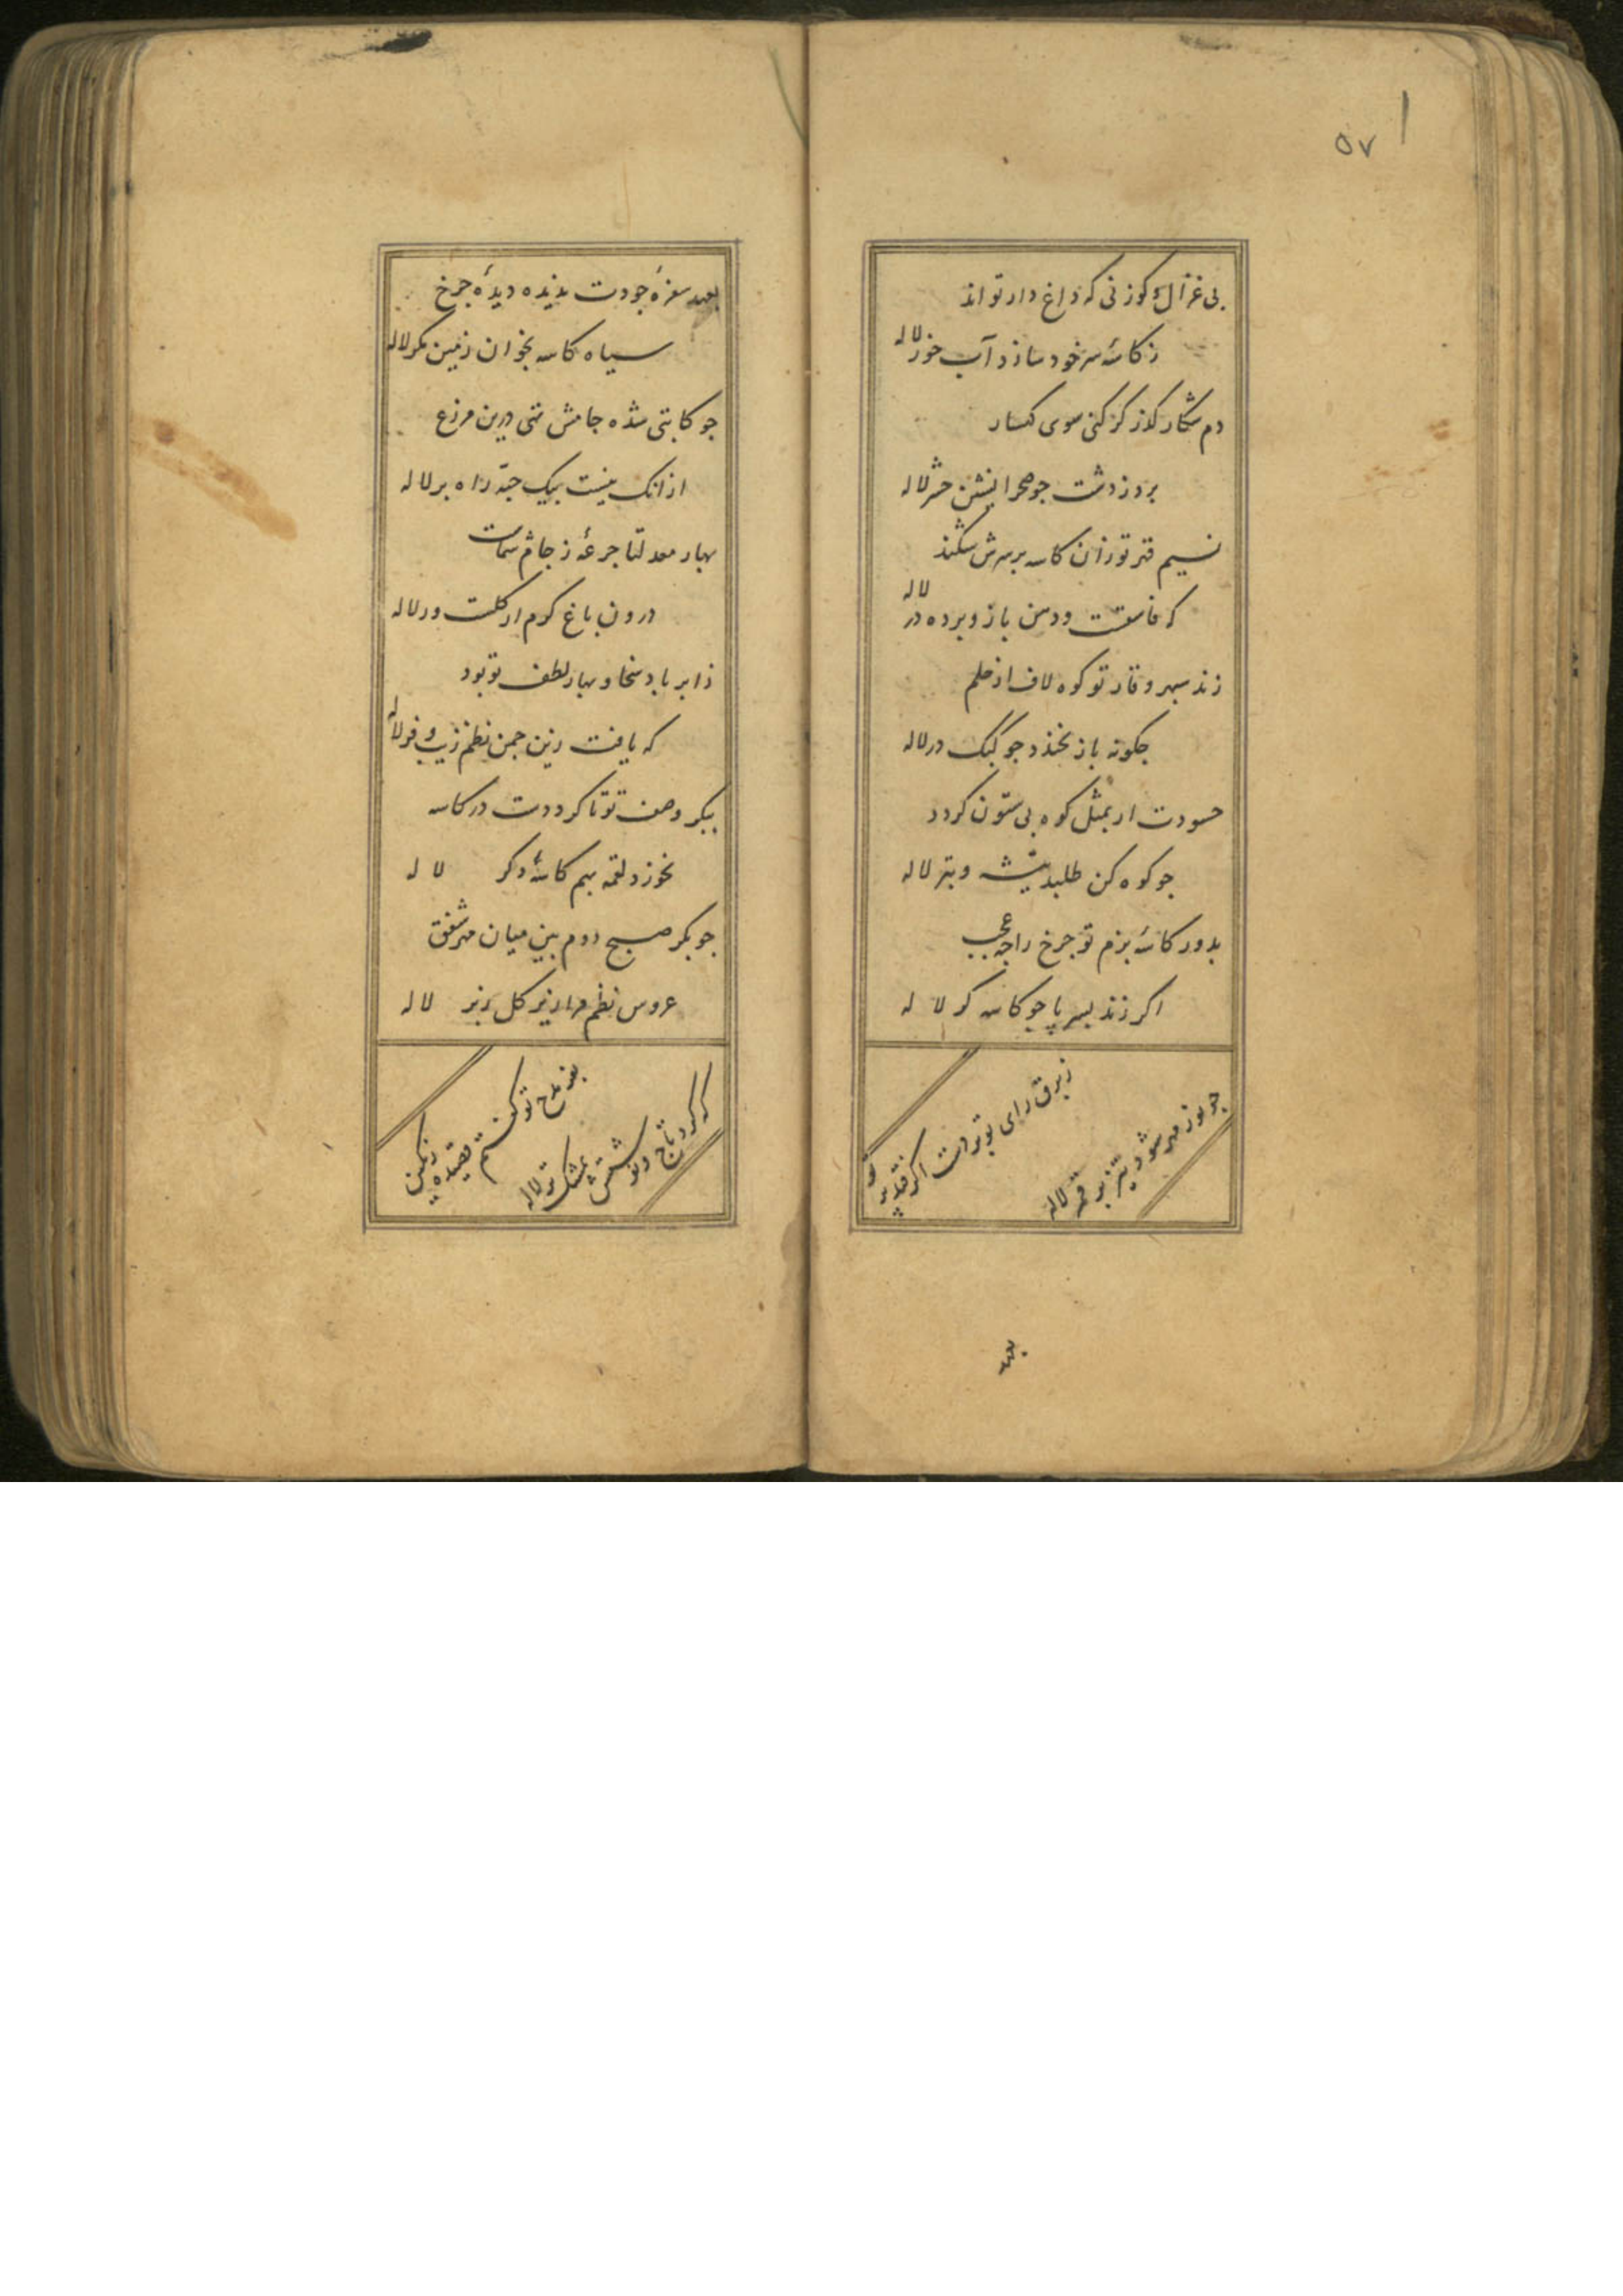 ۵۷
پی غزال و کوزنی که داغ دار تواند
ز کاسهٔ سر خود سازد آب خور لاله
دم شکار کذر کر کنی سوی کهسار
برد ز دشت جو صحرا نشین حشر لاله
نسیم قهر تو زان کاسه بر سرش شکند
که فاسقست و دهن باز و پرده در لاله
زند سپهر وقار تو کوه لاف از حلم
جکونه باز نخندد جو کبک در لاله
حسودت ار بمثل کوه بی ستون کردد
جو کوه کن طلبد تیشه و تبر لاله
بدور کاسهٔ بزم تو جرخ را جه عجب
اکر زند بسر پا جو کاسه کر لاله
ز برق رای تو پرتو اکر فتد
جو نور مهر شود نیز قمر لاله
بعهد
بعهد سفرهٔ جودت ندیده دیدهٔ جرخ
سیاه کاسه بخوان زمین مکر لاله
جو کابتی شده جامش تهی درین مزرع
از انک نیست بیک حبه راه بر لاله
بهار معدلتا جرعهٔ ز جام شماست
درون باغ کرم ار کلست ور لاله
ز ابر باد سخا و بهار لطف تو بود
که یافت زین جمن نظم زیب و فر لاله
ببکر وصف تو تا کرد دست در کاسه
نخورد لقمه بهم کاسهٔ دکر لاله
جو بکر صبح دوم بین میان مهر شفق
عروس نظم مرا زیر کل زبر لاله
بعز مدح تو کفتم قصیدهٔ رنکین
که کرد تاج ونوشتش بمشک تر لاله